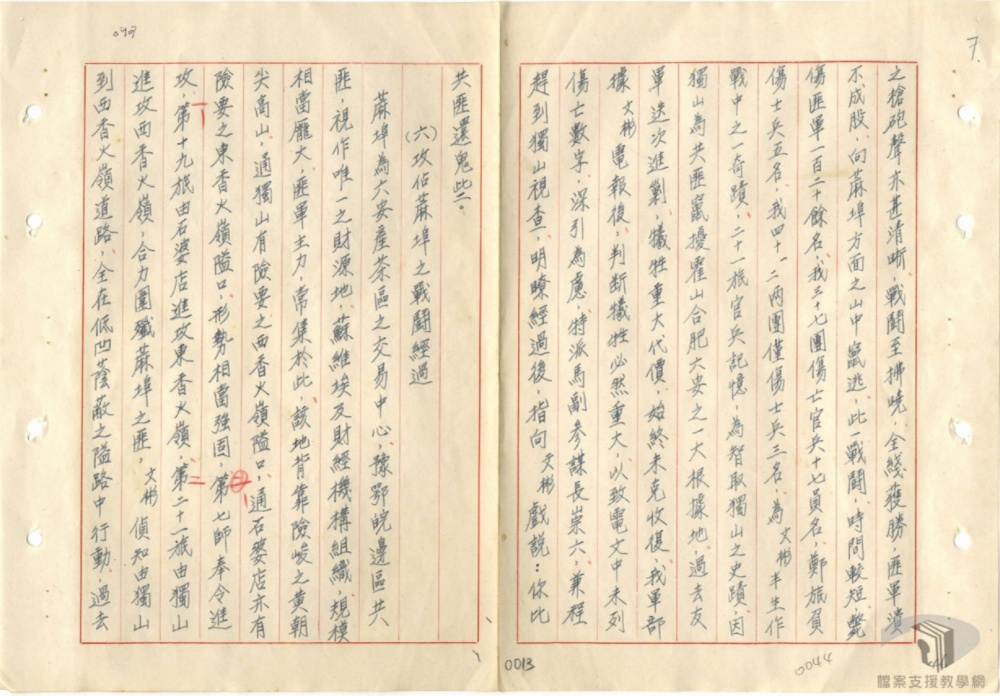 7.
之槍砲聲亦甚清晰，戰鬪至拂曉，全綫獲勝，匪軍潰
不成股，向蔴埠方面之山中竄逃，此戰鬪，時間較短，斃
傷匪軍一百二十餘名，我三十七團傷亡官兵十七員名，鄭旅負
傷士兵五名，我四十一、二兩團僅傷士兵三名，為文彬半生作
戰中之一奇蹟，二十一旅官兵記憶，為智取獨山之史蹟，因
獨山為共匪竄擾霍山合肥六安之一大根據地，過去友
軍迭次進剿，犧牲重大代價，始終未克收復，我軍部
據文彬電報後，判斷犧牲必然重大，以致電文中未列
傷亡數字，深引為慮，特派馬副參謀長崇六，兼程
趕到獨山視查，明瞭經過後，指向文彬戲說：你比
0013
0044
共匪還鬼些。
(六)攻佔蔴埠之戰鬪經過
蔴埠為六安產茶區之交易中心，豫鄂皖邊區共
匪，視作唯一之財源地，蘇維埃及財經機構組織，規模
相當龐大，匪軍主力，常集於此，該地背靠險峻之黃朝
尖高山，通獨山有險要之西香火嶺隘口，通石婆店亦有
險要之東香火嶺隘口，形勢相當強固，第七師奉令進
攻，第十九旅由石婆店進攻東香火嶺，第二十一旅由獨山
進攻西香火嶺，合力圍殲蔴埠之匪，文彬偵知由獨山
到西香火嶺道路，全在低凹蔭蔽之隘路中行動，過去
檔案支援教學網